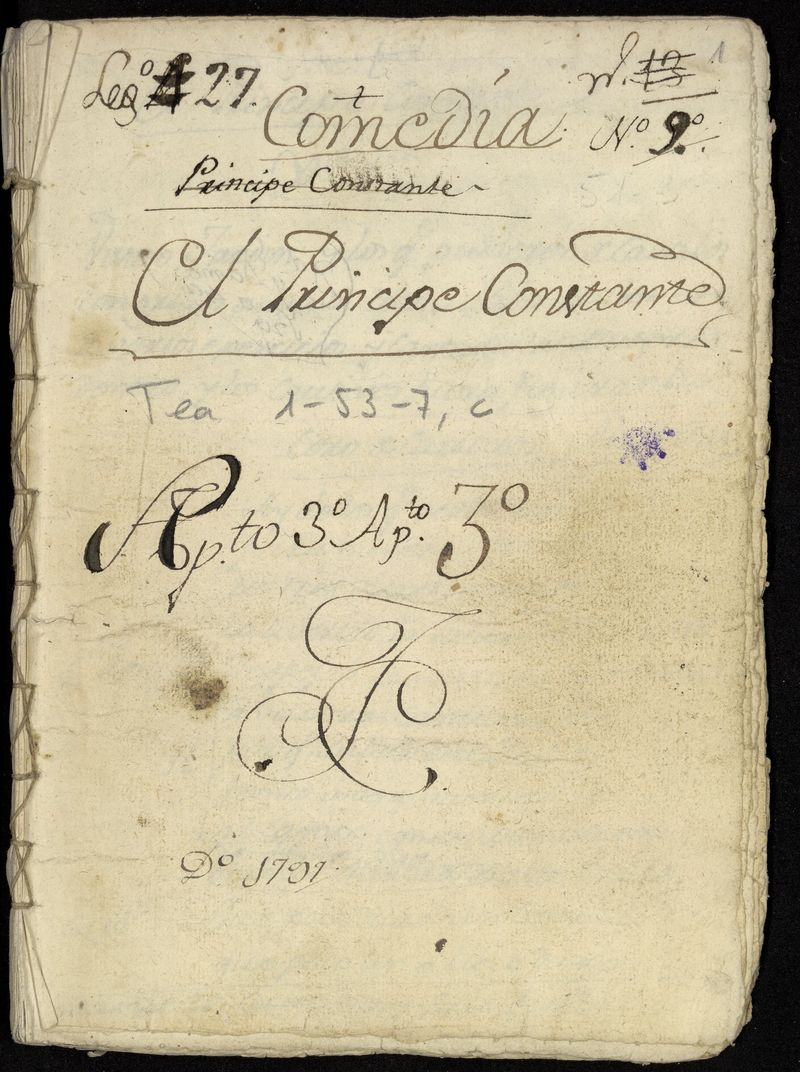 Leg.º 27.
n.º 13 1
Comedia. N.º 9.º
Principe Constante
El Principe Constante
Tea 1-53-7, c
Ap.to 3º Ap.to 3º
Dº 1791